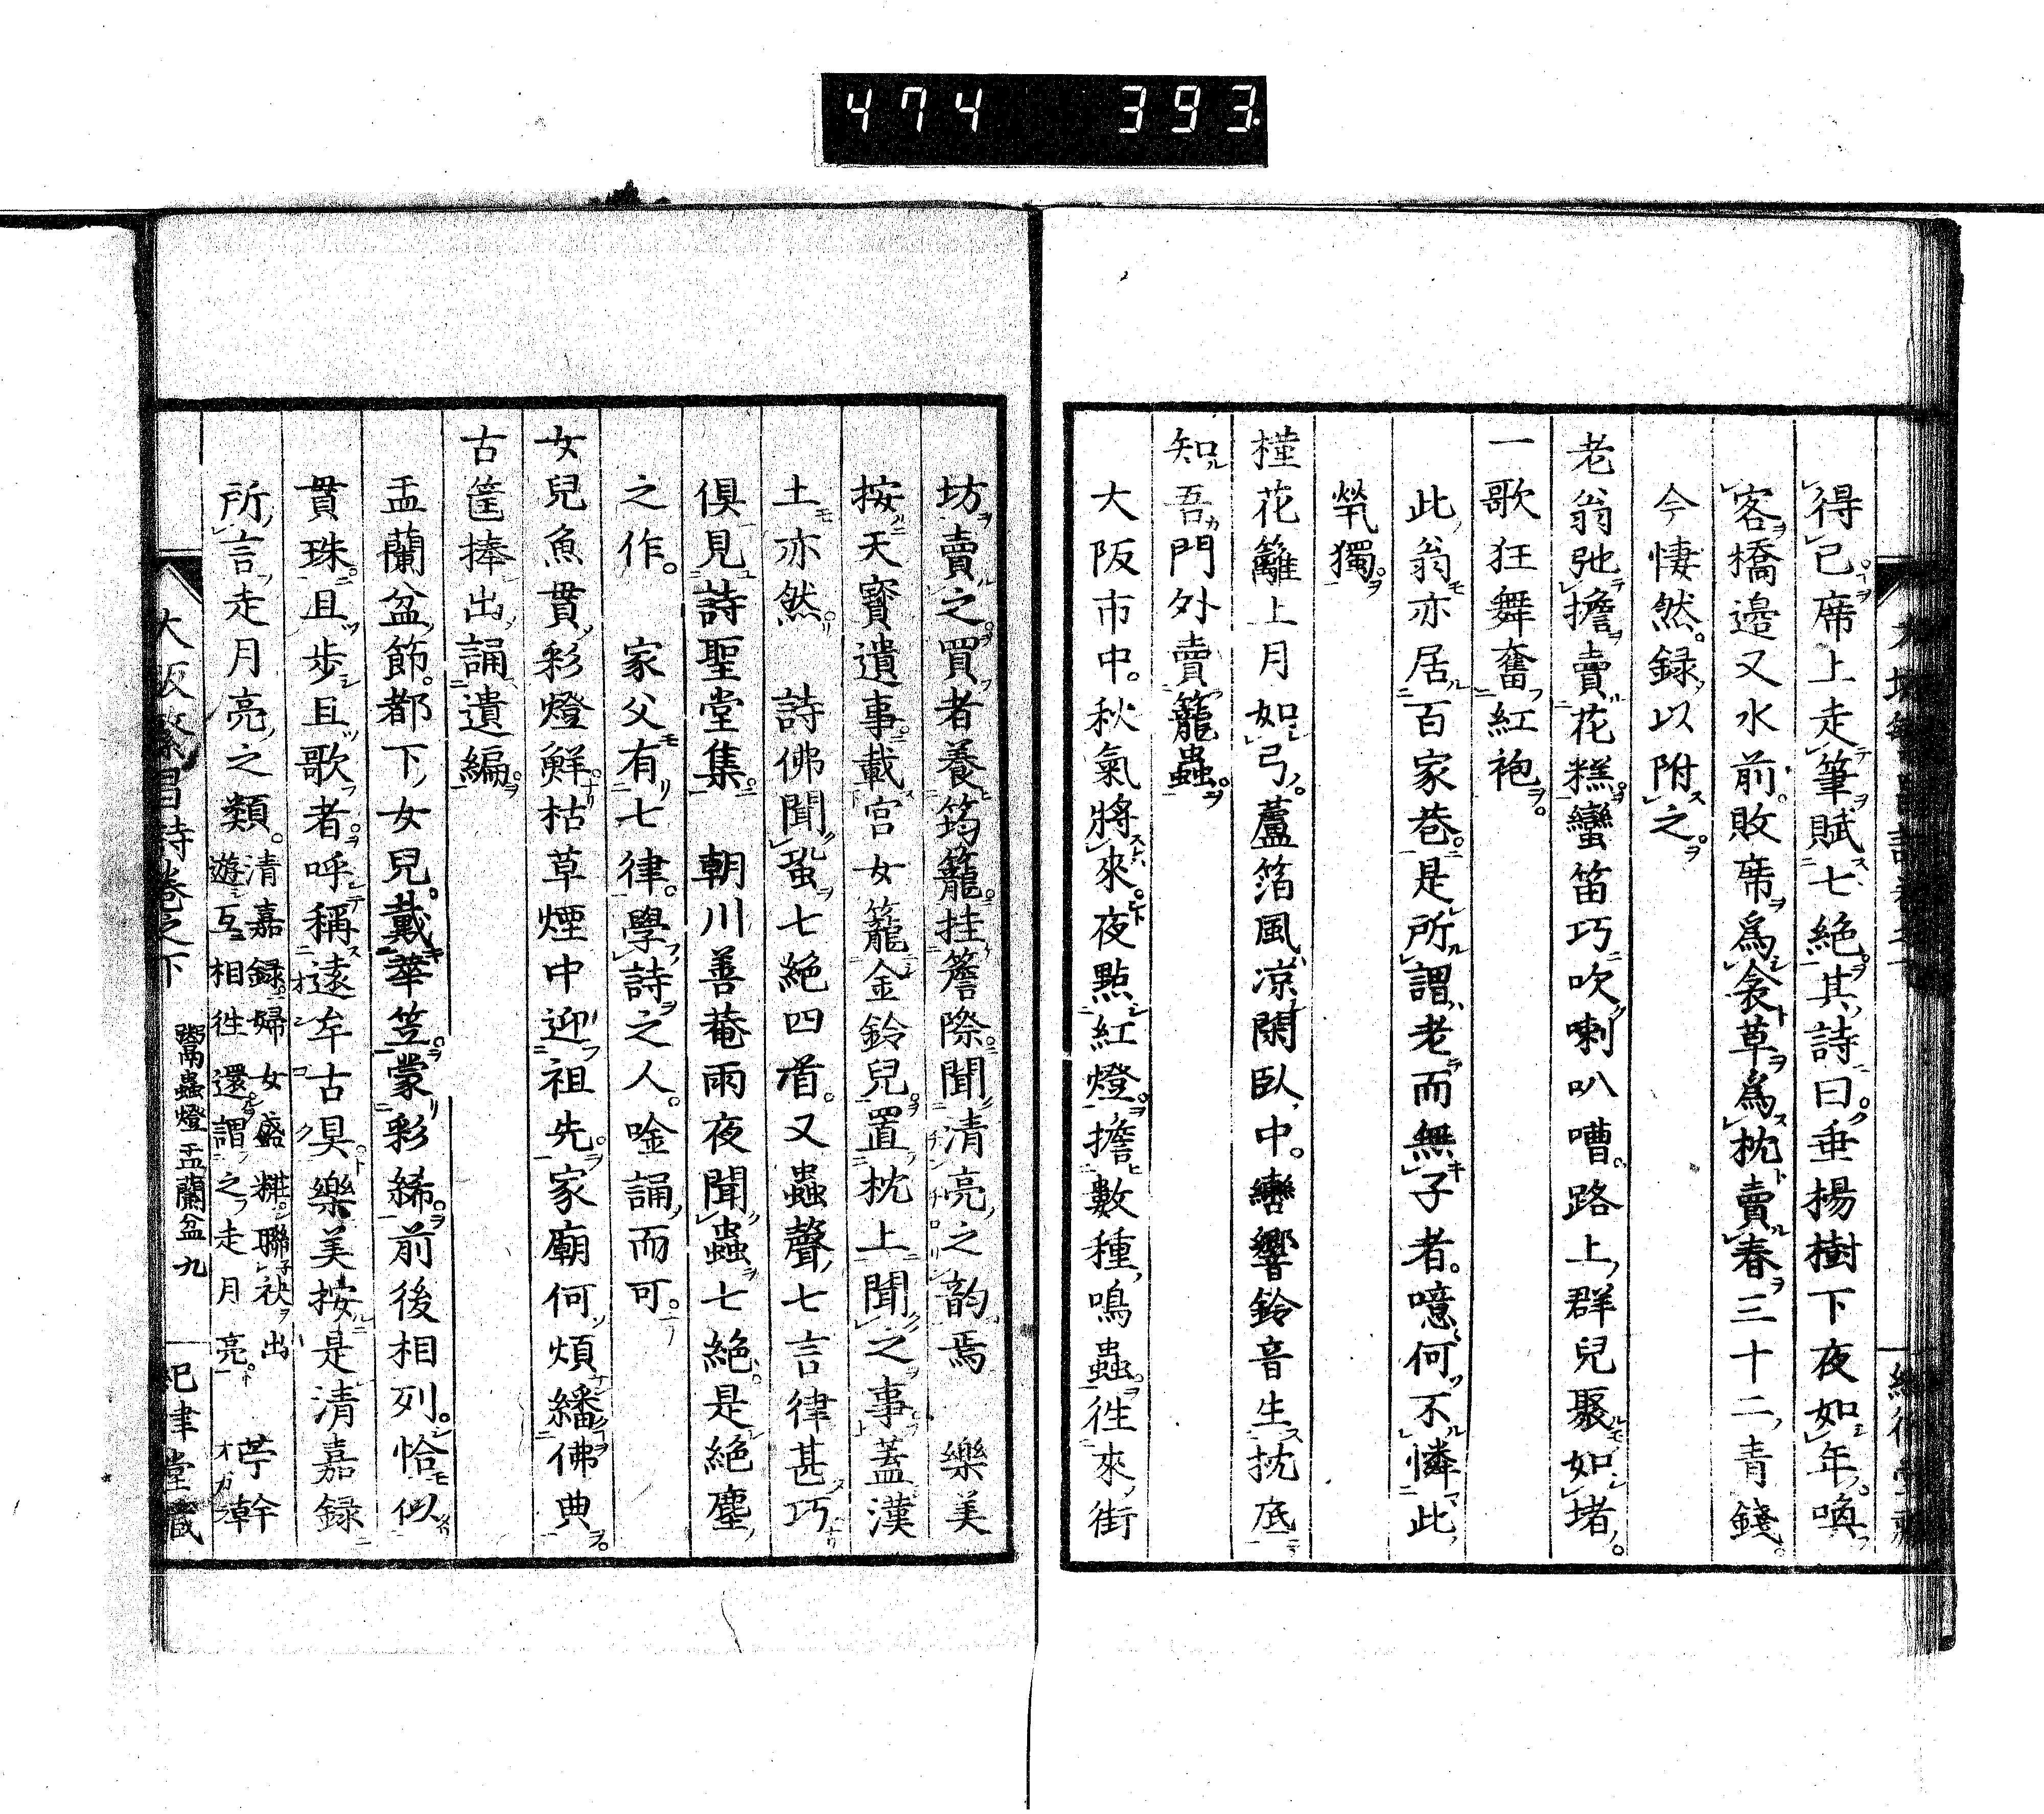 474 393.
得已席上走筆賦七絶其詩曰垂楊樹下夜如年喚
客橋邊又水前敗席爲衾草爲枕賣春三十二青錢
今悽然録以附之
老翁弛擔賣花糕蠻笛巧吹喇叭嘈路上群兒聚如堵
一歌狂舞奮紅袍
此翁亦居百家巷是所謂老而無子者噫何不憐此
煢獨
槿花籬上月如弓蘆箔風凉閑臥中轡響鈴音生枕底
知吾門外賣籠蟲
大阪市中秋氣將來夜點紅燈擔數種鳴蟲徃來街
坊賣之買者養筠籠挂簷際聞清亮之韵焉 樂美
按天寳遺事載宮女籠金鈴兒置枕上聞之事蓋漢
土亦然 詩佛聞蛩七絶四首又蟲聲七言律甚巧
俱見詩聖堂集 朝川善菴雨夜聞蟲七絶是絶塵
之作 家父有七律學詩之人唫誦而可
女兒魚貫彩燈鮮枯草煙中迎祖先家廟何煩繙佛典
古筐捧出誦遺編
盂蘭盆節都下女兒戴華笠蒙彩絺前後相列恰似
貫珠且步且歌者呼稱遠牟古具樂美按是清嘉録
所言走月亮之類 清嘉録婦女盛粧聯袂出
遊互相徃還謂之走月亮
大阪繁昌詩卷之下 鬻蟲燈 盂蘭盆 九